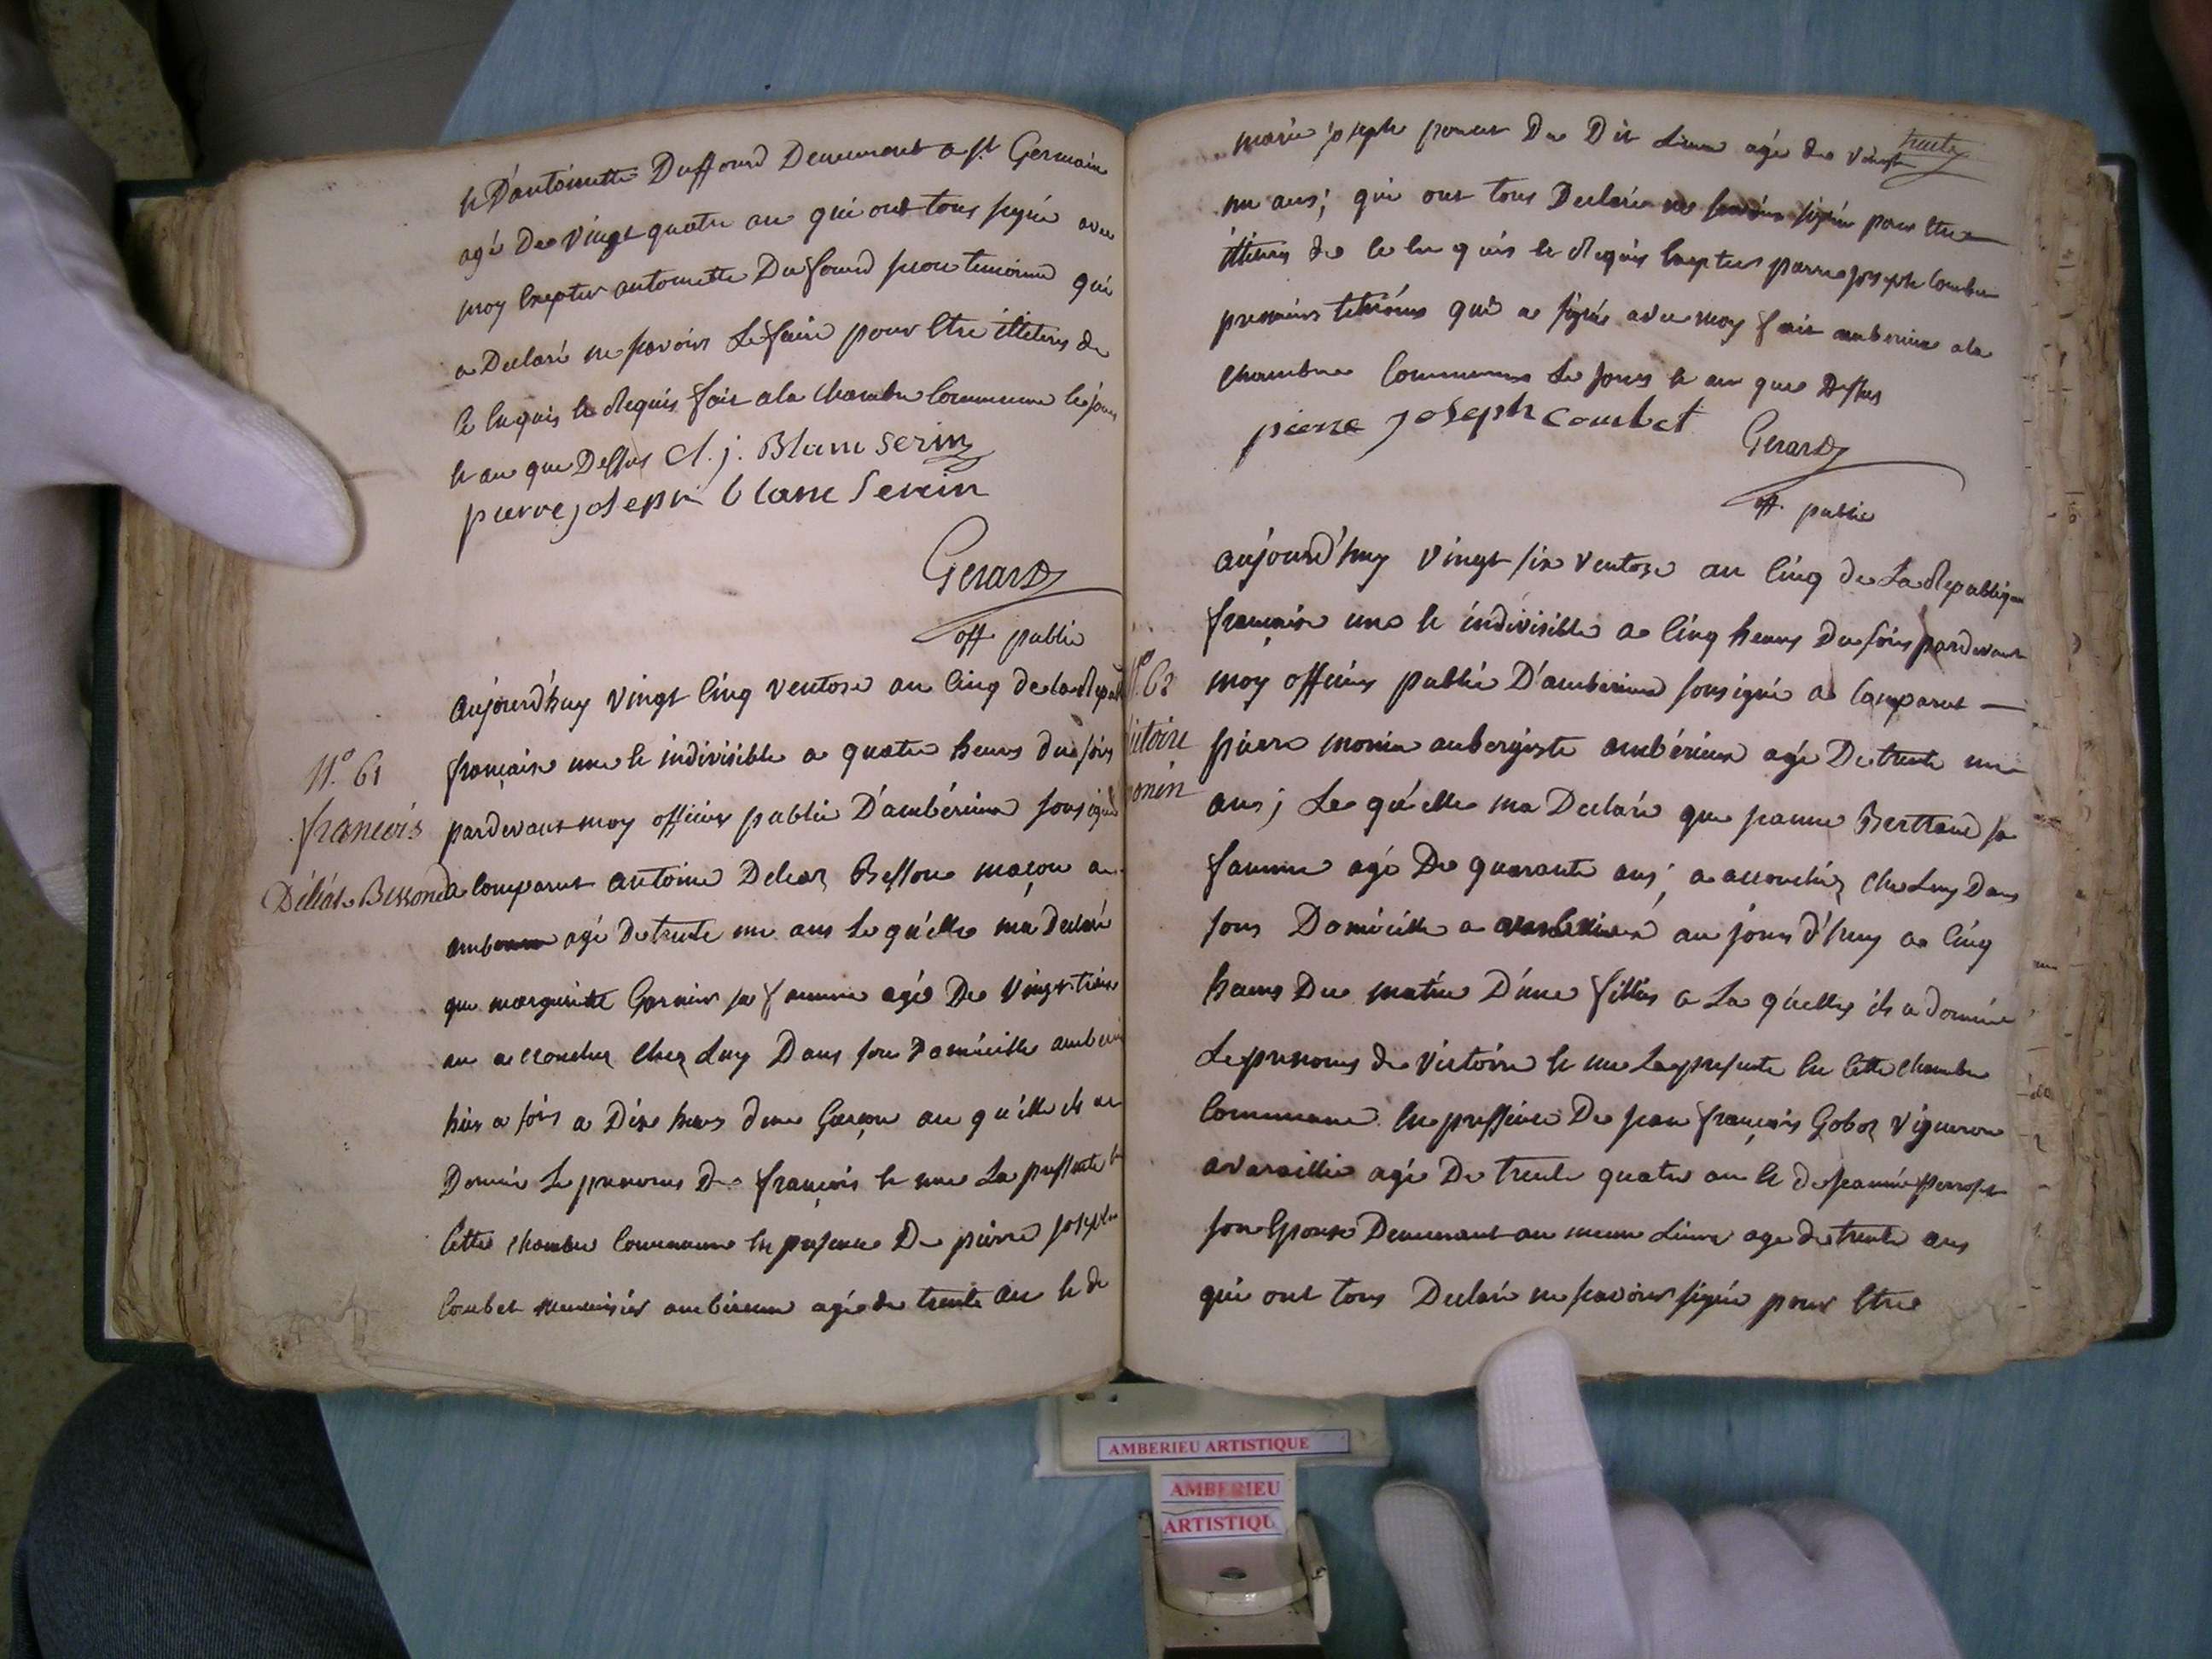 et D'antoinette Dufourd Demeurant a st Germain
agé De vingt quatre an qui ont tous signé avec
moy Excepter antoinette Dufourd qui
a Declaré ne savoir Le faire pour Etre illeteres de
Ce Enquis et Requis fait a la Chambre Commune Le jour
et an que Dessus Cl. j. Blanc Serin
pierre joseph blanc Serin
Gerard
off. public
aujourd'huy vingt Cinq ventose an Cinq de la Repub
française une et indivisible a quatre heures du soir
N.º 61
françois
Déléat Besson
pardevant moy officier public D'ambérieux sousigné
a Comparut antoine Deleaz Besson maçon a
agé De trente un ans Le quelle ma Declaré
que marguerite Garnier sa famme agé De vingt
an accoucher Chez Luy Dans son Domicille
hier a soir a Dix heures dun Garçon au quelle il a
Donné Le prenoms De françois et me La pressente En
Cette Chambre Commune En presence De pierre joseph
Combet menuisier amberieux agé de trente an et de
trente
marie joseph Du Dit Lieux agé de vingt
un ans; qui ont tous Declaré ne savoir signé pour Etre
illeteres de Ce Enquis et Requis Excepter pierre joseph Combet
premier temoins qui a signé avec moy fait amberieux a la
Chambre Commune Le jours et an que Dessus
pierre joseph Combet
Gerard
off. public
aujourd'huy vingt six ventose an Cinq de La Republique
française une et indivisible a Cinq heures Du soir pardevant
N.º 62
ictoire
onin
moy officier public D'amberieux sousigné a Comparut
pierre monin aubergiste ambérieux agé De trente un
ans; Le quelle ma Declaré que jeanne Bertrand sa
famme agé De quarante ans; a accouchéz Chez Luy Dans
sons Domicille a amberieux au jourd'huy a Cinq
heures Du matin D'une fillie a La quelle il a donné
Le prenoms de victoire et me La presente En Cette Chambre
Commune En pressence De jean françois Goboz vigneron
a varaillie agé De trente quatre an et de jeanne
son Epouse Demeurant au meme Lieux age de trente ans
qui ont tous Declaré ne savoir signé pour Etre
AMBERIEU ARTISTIQUE
AMBERIEU
ARTISTIQU